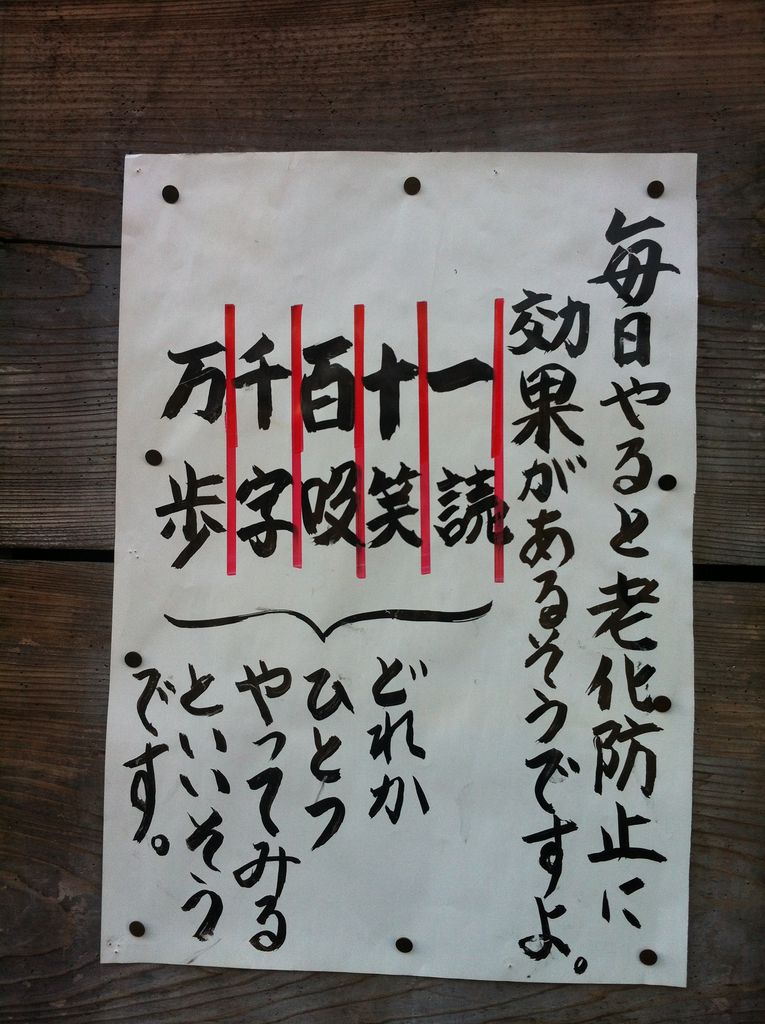 毎日やると老化防止に
効果があるそうですよ。
一読
十笑
百吸
千字
万歩
どれか
ひとつ
やってみる
といいそう
です。